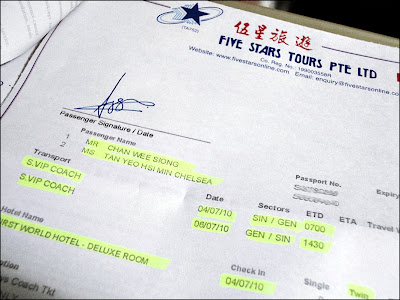 (TA/752)
伍星旅遊
FIVE STARS TOURS PTE LTD
Co. Reg. No.: 199003558R
Website: www.fivestarsonline.com Email: enquiry@fivestarsonline.com
Passenger Signature / Date
Passenger Name Passport No. Expiry
1 MR CHAN WEE SIONG
2 MS TAN YEO HSI MIN CHELSEA
Transport Sectors ETD ETA Travel
S.VIP COACH 04/07/10 SIN / GEN 0700
S.VIP COACH 06/07/10 GEN / SIN 1430
Hotel Name Check In Single Twin
FIRST WORLD HOTEL - DELUXE ROOM 04/07/10
Coach Tkt 04/07/10